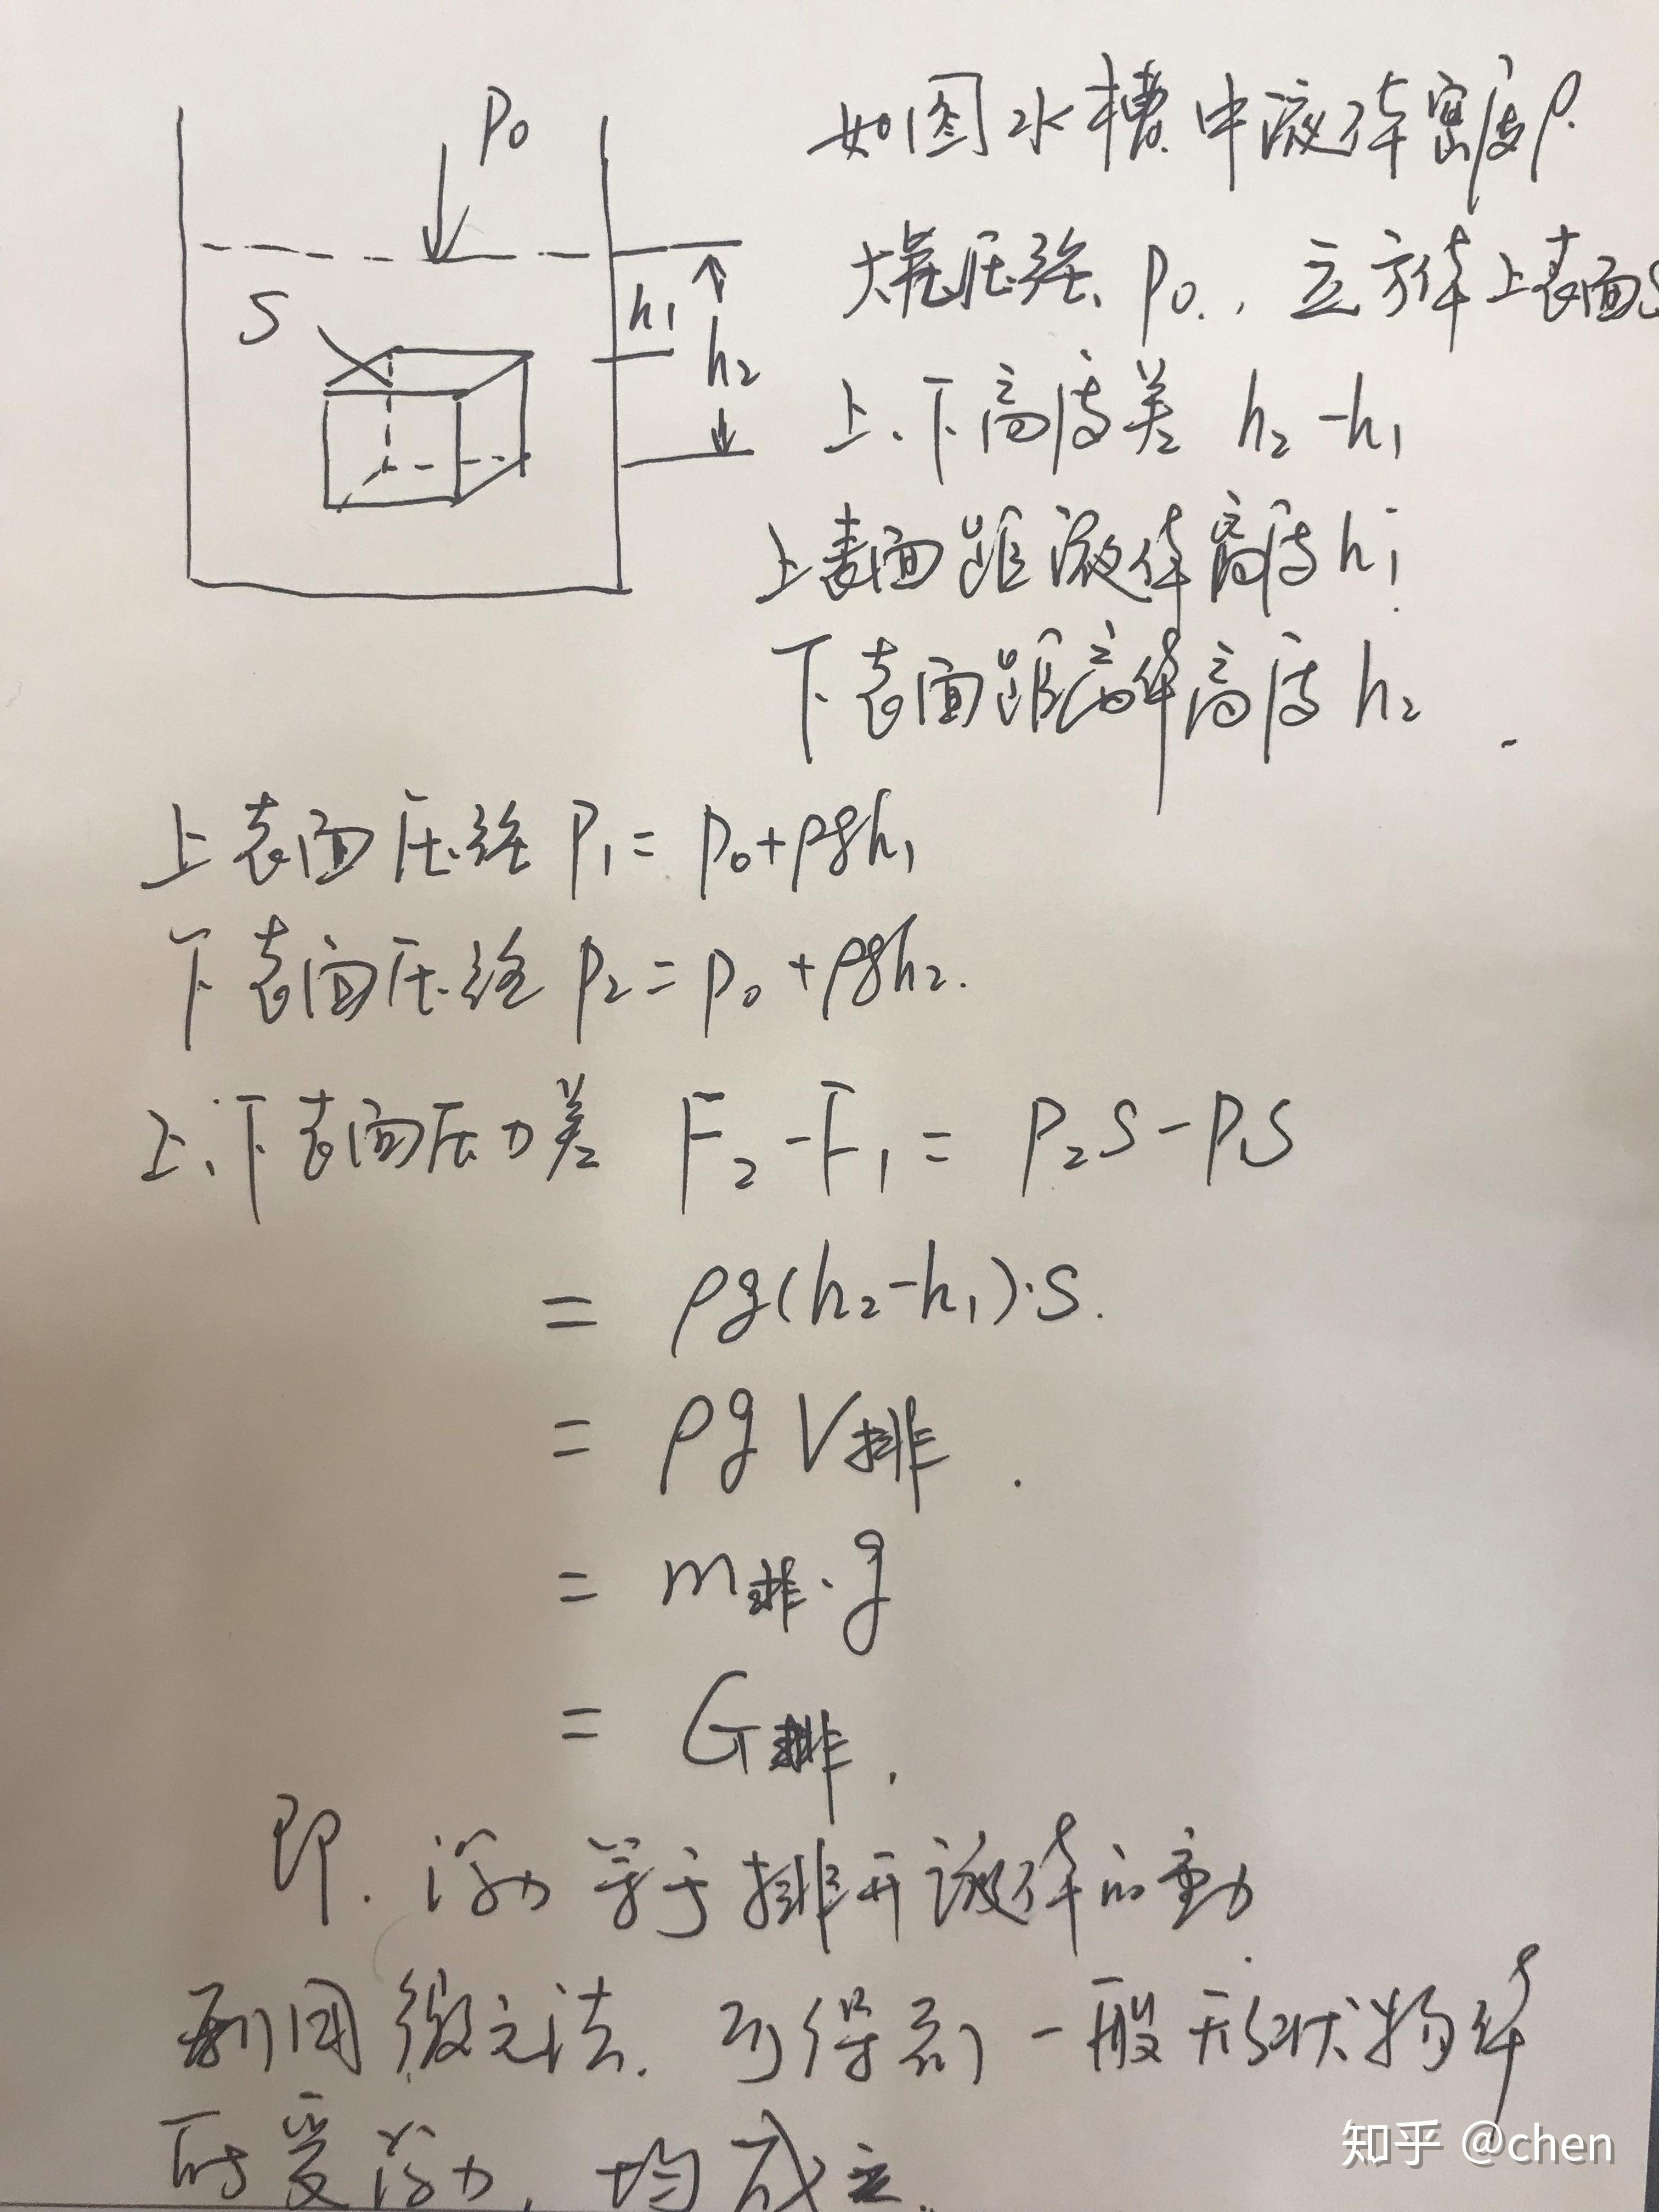 P₀
S
h₁
h₂
如图水槽中液体密度ρ.
大气压强 p₀., 立方体上表面S
上、下高度差 h₂-h₁
上表面距液体高度h₁
下表面距液体高度h₂
上表面压强 P₁= p₀+ρgh₁
下表面压强 P₂= p₀+ρgh₂.
上、下表面压力差 F₂-F₁= P₂S-P₁S
= ρg(h₂-h₁)·S.
= ρgV排.
= m排·g
= G排.
即.浮力等于排开液体的重力
利用微元法.可得到一般形状物体
所受浮力,均成立.
知乎 @chen